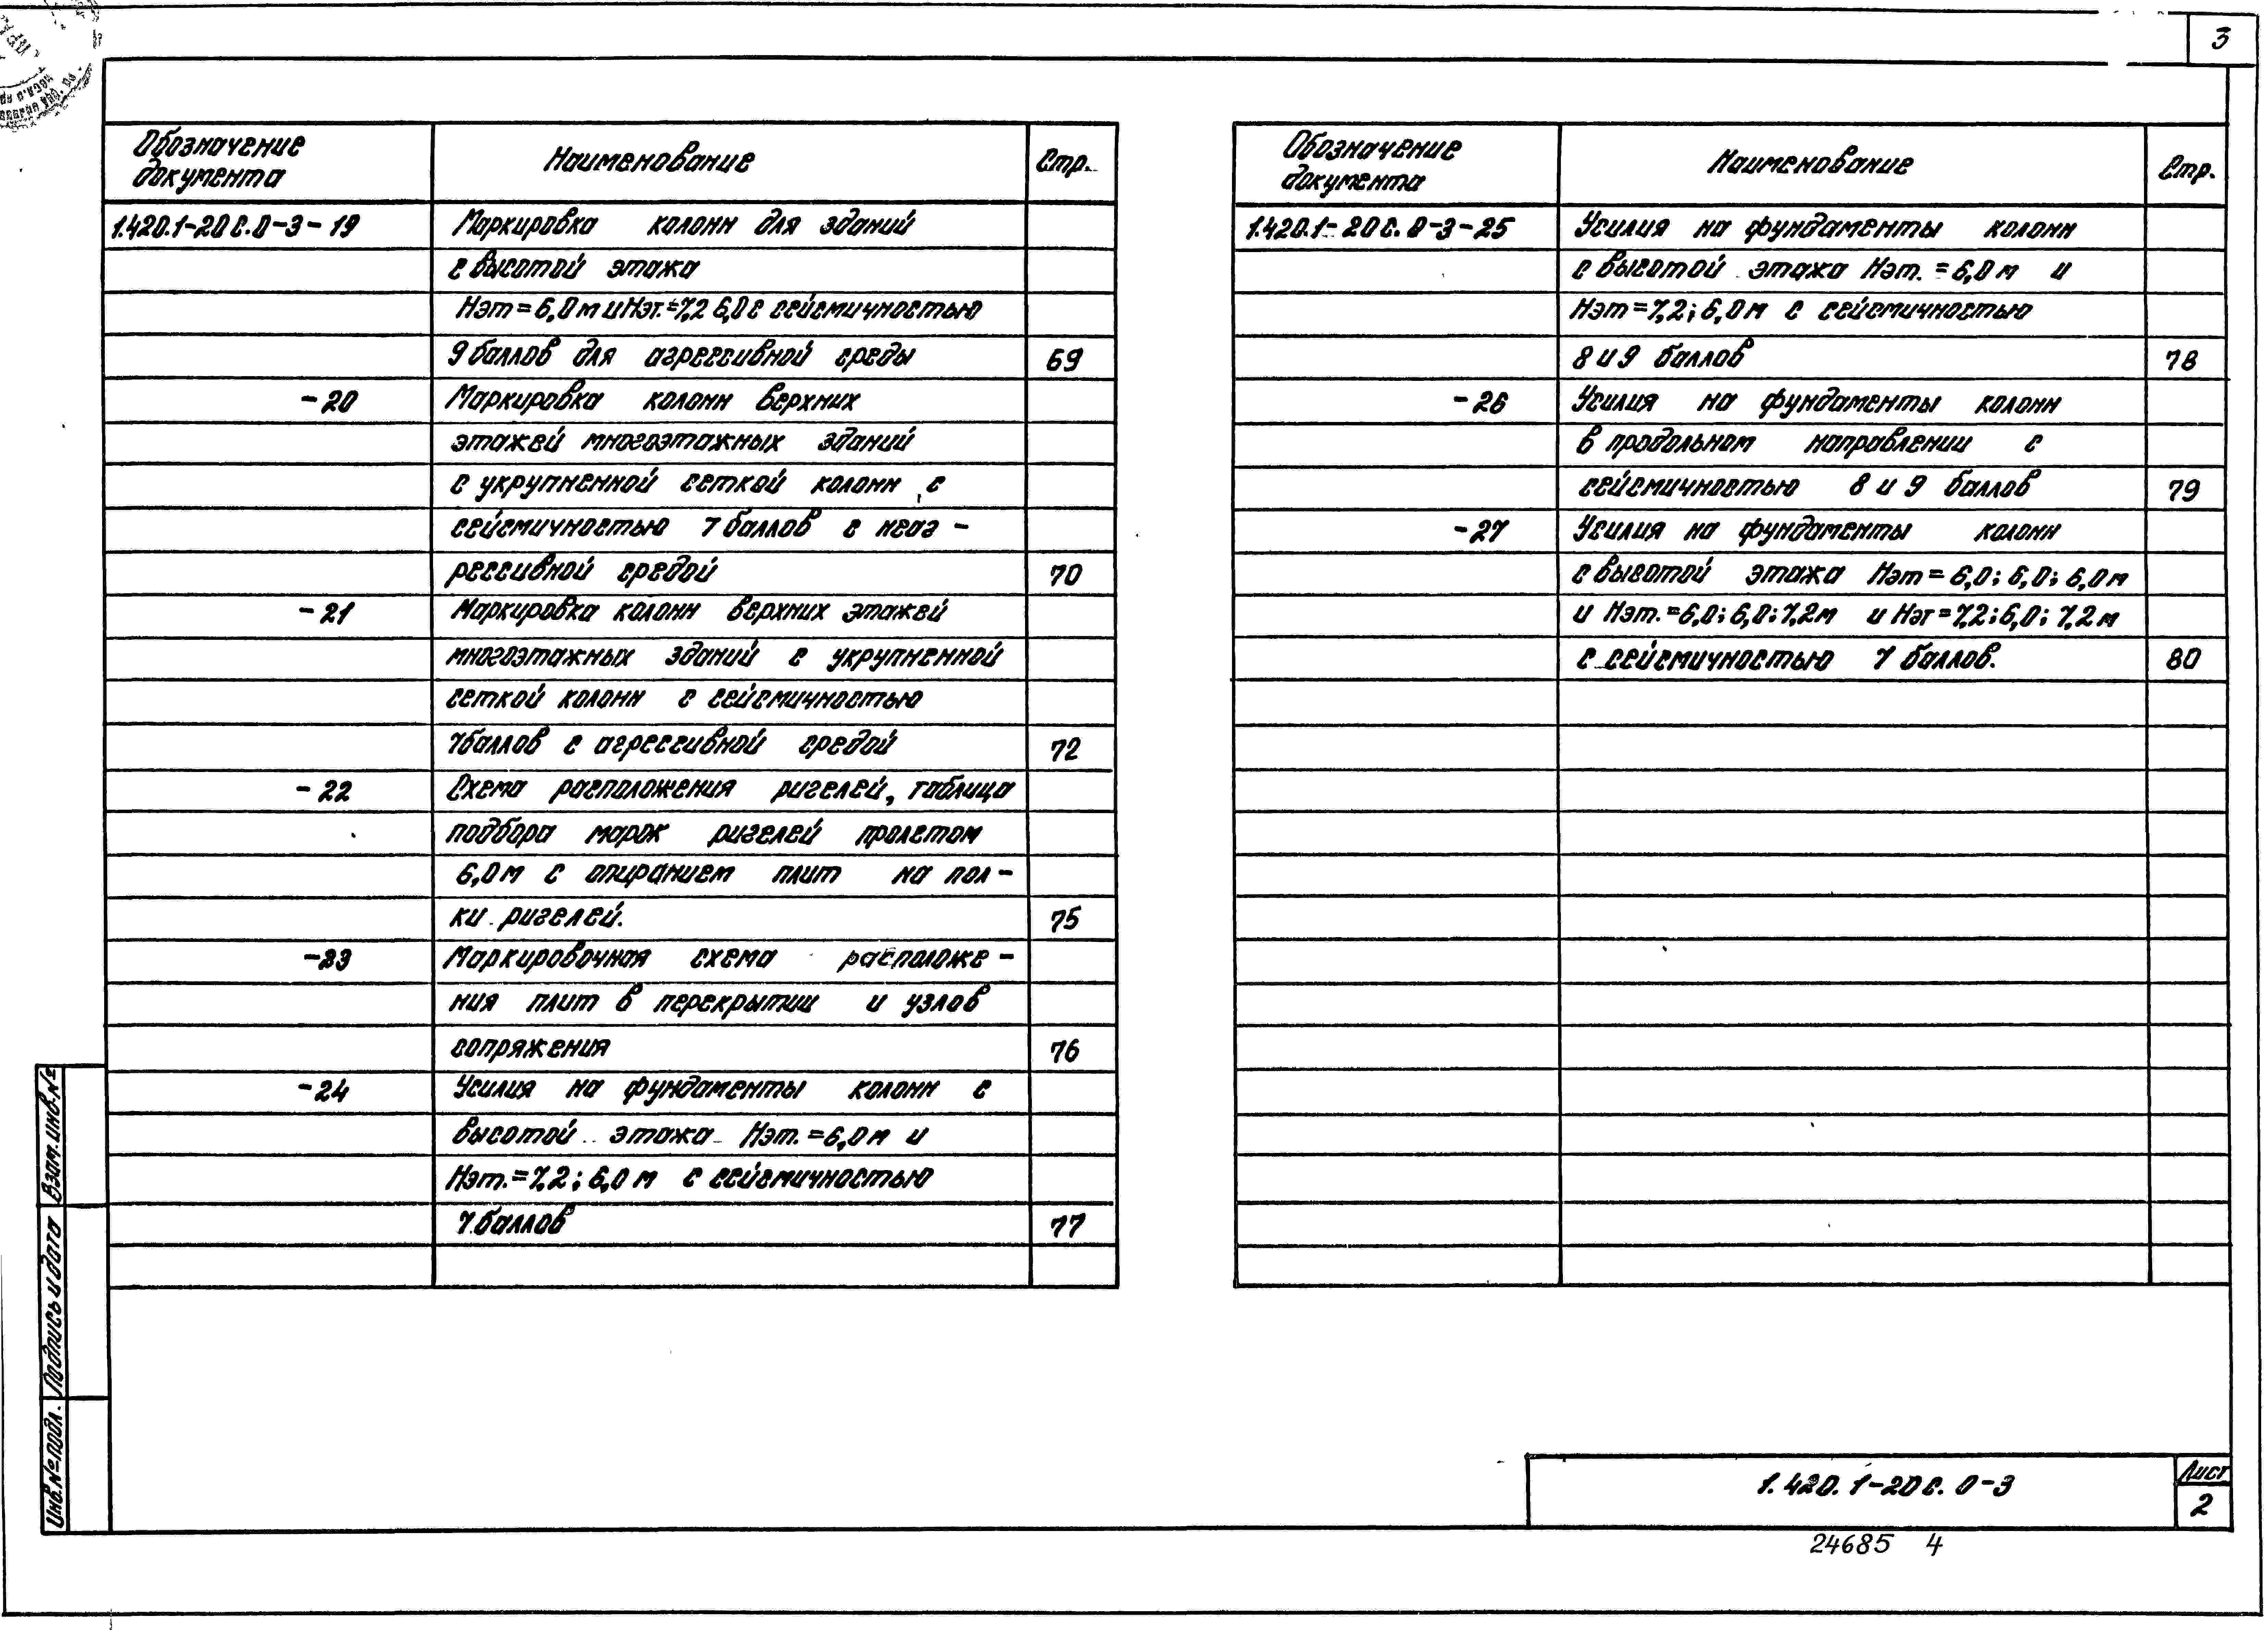 3
Обозначение
документа
Наименование
Стр.
1.420.1-20 с.0-3-19
Маркировка колонн для зданий
с высотой этажа
Нэт=6,0м и Нэт.=7,2 6,0 с сейсмичностью
9 баллов для агрессивной среды 69
-20 Маркировка колонн верхних
этажей многоэтажных зданий
с укрупненной сеткой колонн, с
сейсмичностью 7 баллов с неаг-
рессивной средой 70
-21 Маркировка колонн верхних этажей
многоэтажных зданий с укрупненной
сеткой колонн с сейсмичностью
7баллов с агрессивной средой 72
-22 Схема расположения ригелей, таблица
подбора марок ригелей пролетом
6,0м с опиранием плит на пол-
ки ригелей. 75
-23 Маркировочная схема расположе-
ния плит в перекрытии и узлов
сопряжения 76
-24 Усилия на фундаменты колонн с
высотой этажа Нэт.=6,0м и
Нэт.=7,2; 6,0 м с сейсмичностью
7 баллов 77
Обозначение
документа
Наименование
Стр.
1.420.1-20 с.0-3-25 Усилия на фундаменты колонн
с высотой этажа Нэт.=6,0м и
Нэт=7,2; 6,0м с сейсмичностью
8 и 9 баллов 78
-26 Усилия на фундаменты колонн
в продольном направлении с
сейсмичностью 8 и 9 баллов 79
-27 Усилия на фундаменты колонн
с высотой этажа Нэт=6,0; 6,0; 6,0м
и Нэт.=6,0; 6,0; 7,2м и Нэт=7,2; 6,0; 7,2м
с сейсмичностью 7 баллов. 80
Взам.инв.№
Подпись и дата
Инв.№подл.
1.420.1-20 с.0-3
Лист
2
24685 4